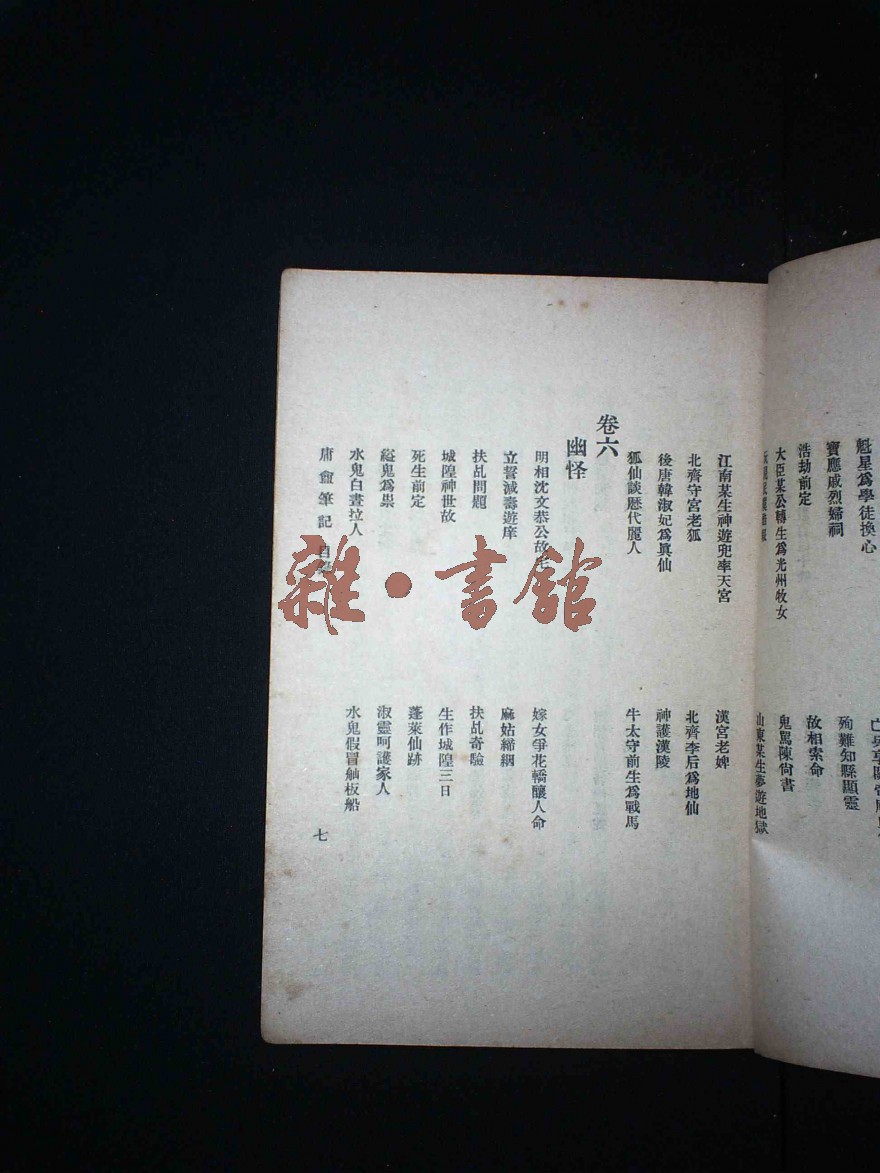 魁星爲學徒換心
寶應戚烈婦祠
殉難知縣顯靈
浩劫前定
故相索命
大臣某公轉生爲光州牧女
鬼罵陳尙書
山東某生夢遊地獄
江南某生神遊兜率天宮
漢宮老婢
北齊守宮老狐
北齊李后爲地仙
後唐韓淑妃爲眞仙
神護漢陵
狐仙談歷代麗人
牛太守前生爲戰馬
卷六
幽怪
明相沈文恭公故宅
嫁女爭花轎釀人命
立誓減壽遊庠
麻姑締姻
扶乩問題
扶乩奇驗
城隍神世故
生作城隍三日
死生前定
蓬萊仙跡
縊鬼爲祟
淑靈呵護家人
水鬼白晝拉人
水鬼假冒舢板船
庸盦筆記 目錄
七
雜·書館